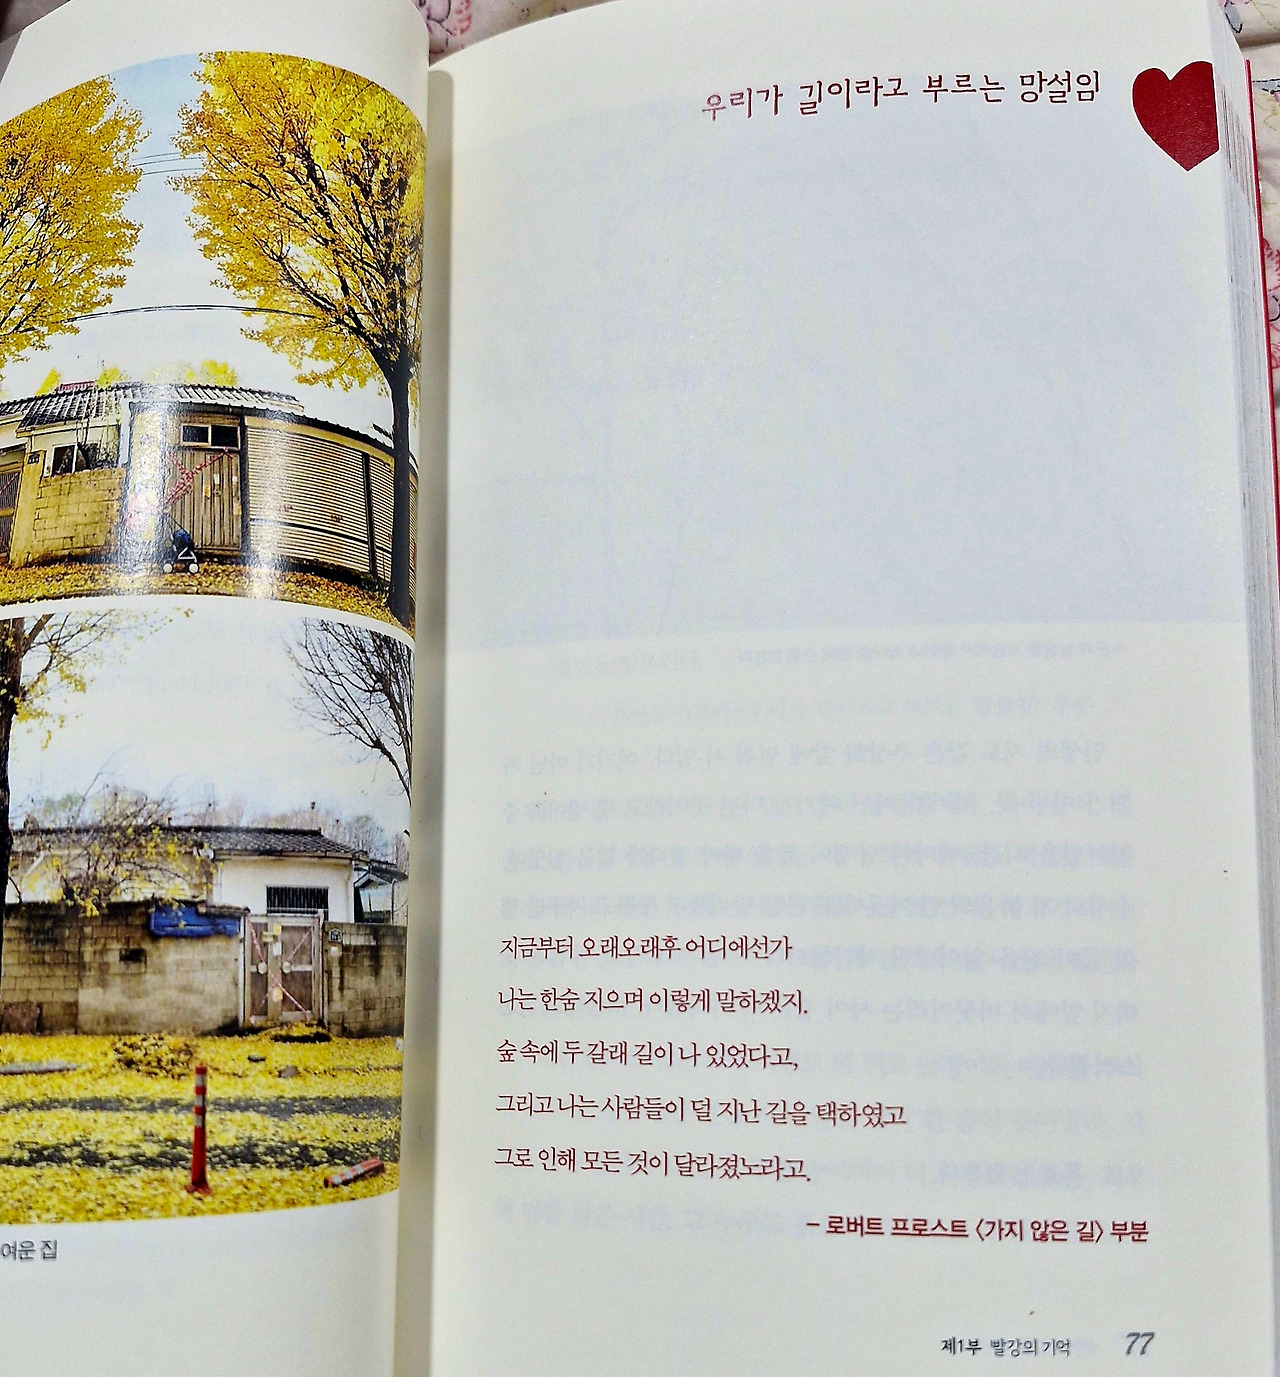 여운 집
우리가 길이라고 부르는 망설임
지금부터 오래오래후 어디에선가
나는 한숨 지으며 이렇게 말하겠지.
숲 속에 두 갈래 길이 나 있었다고,
그리고 나는 사람들이 덜 지난 길을 택하였고
그로 인해 모든 것이 달라졌노라고.
– 로버트 프로스트 〈가지 않은 길〉 부분
제1부 빨강의 기억 77